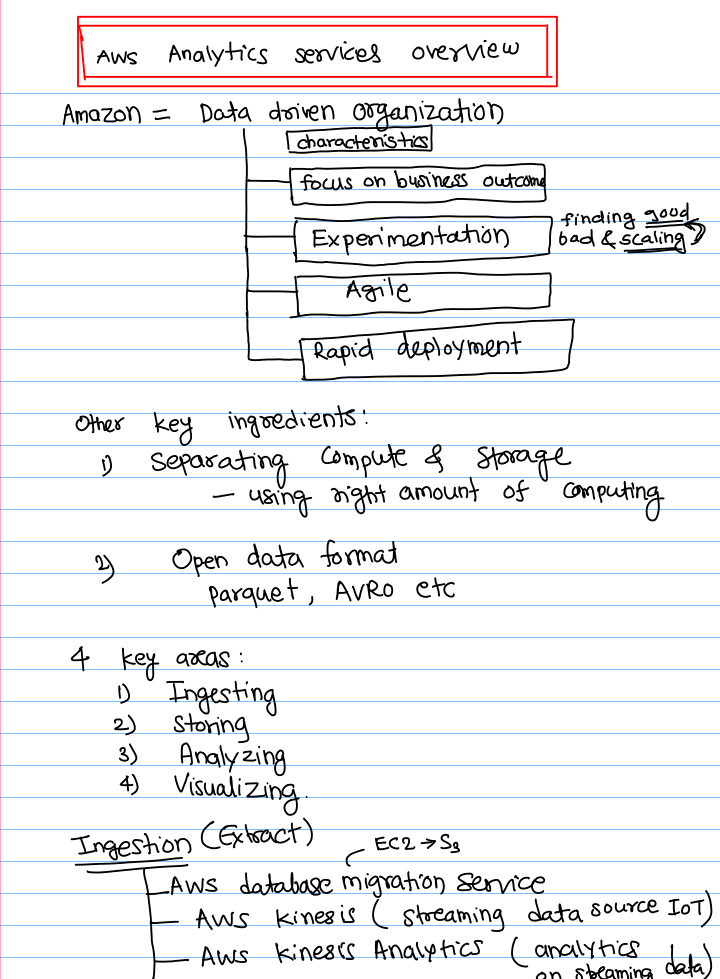 AWS Analytics services overview
Amazon = Data driven organization
characteristics
focus on business outcome
Experimentation
finding good
bad & scaling
Agile
Rapid deployment
Other key ingredients:
1) Separating Compute & Storage
- using right amount of computing
2) Open data format
parquet, AVRO etc
4 key areas:
1) Ingesting
2) Storing
3) Analyzing
4) Visualizing.
Ingestion (Extract)
EC2 → S3
AWS database migration service
AWS kinesis ( streaming data source IoT)
AWS kinesis Analytics ( analytics
on streaming data)